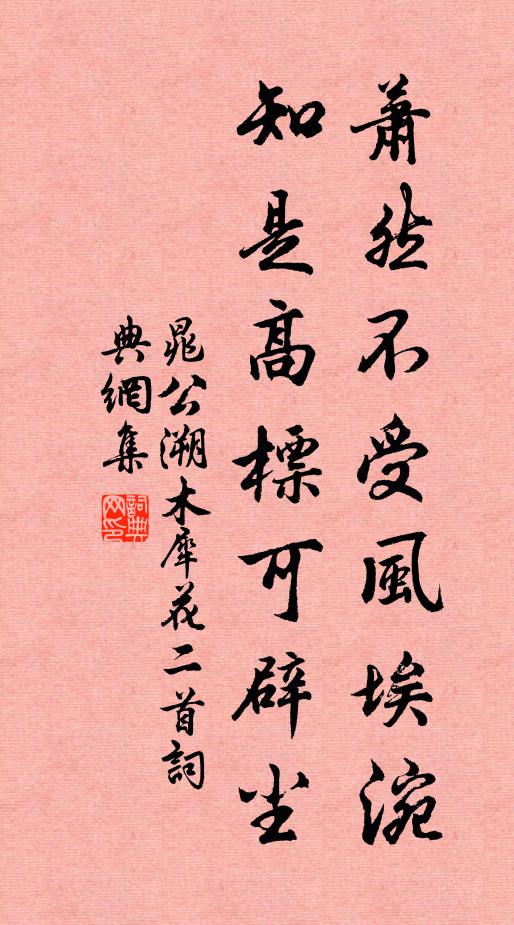 蕭然不受風埃涴
知是高標可辟尘
晁公溯木犀花二首詞
典網集
詞典网印